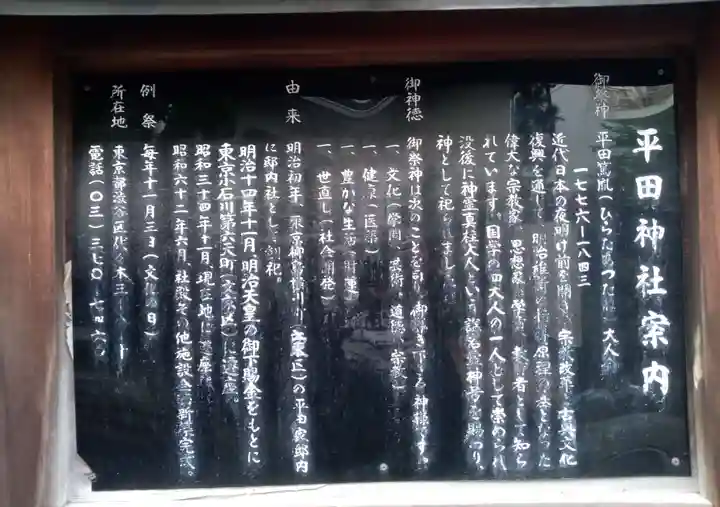 平田神社案内
御祭神 平田篤胤(ひらたあつたね)大人命
一七七六ー一八四三
近代日本の夜明け前を開き、宗教改革と古典文化
復興を通じて、明治維新の指導原理の本となった
偉大な宗教家、思想家、学者、教育者として知ら
れています。国学の四大人の一人として崇められ
没後に神霊真柱大人という諡号と神号を賜わり、
神として祀られました。
御神徳 御祭神は次のことを司り、御導き下さる神様です。
一、文化(学問、芸術、道徳、宗教)
一、健康(医薬)
一、豊かな生活(財運)
一、世直し(社会開発)
由来 明治初年、東京御 横川川(区)の平田家邸内
に邸内社として創祀。
明治十四年十一月、明治天皇の御下賜金をもとに
東京小石川第六天町(文京区)に遷座。
昭和三十四年十一月、現在地に遷座。
昭和六十二年六月、社殿その他施設全部新築完成。
例祭 毎年十一月三日(文化の日)
所在地 東京都渋谷区代々木三
電話(〇三)三七〇ー七四六〇